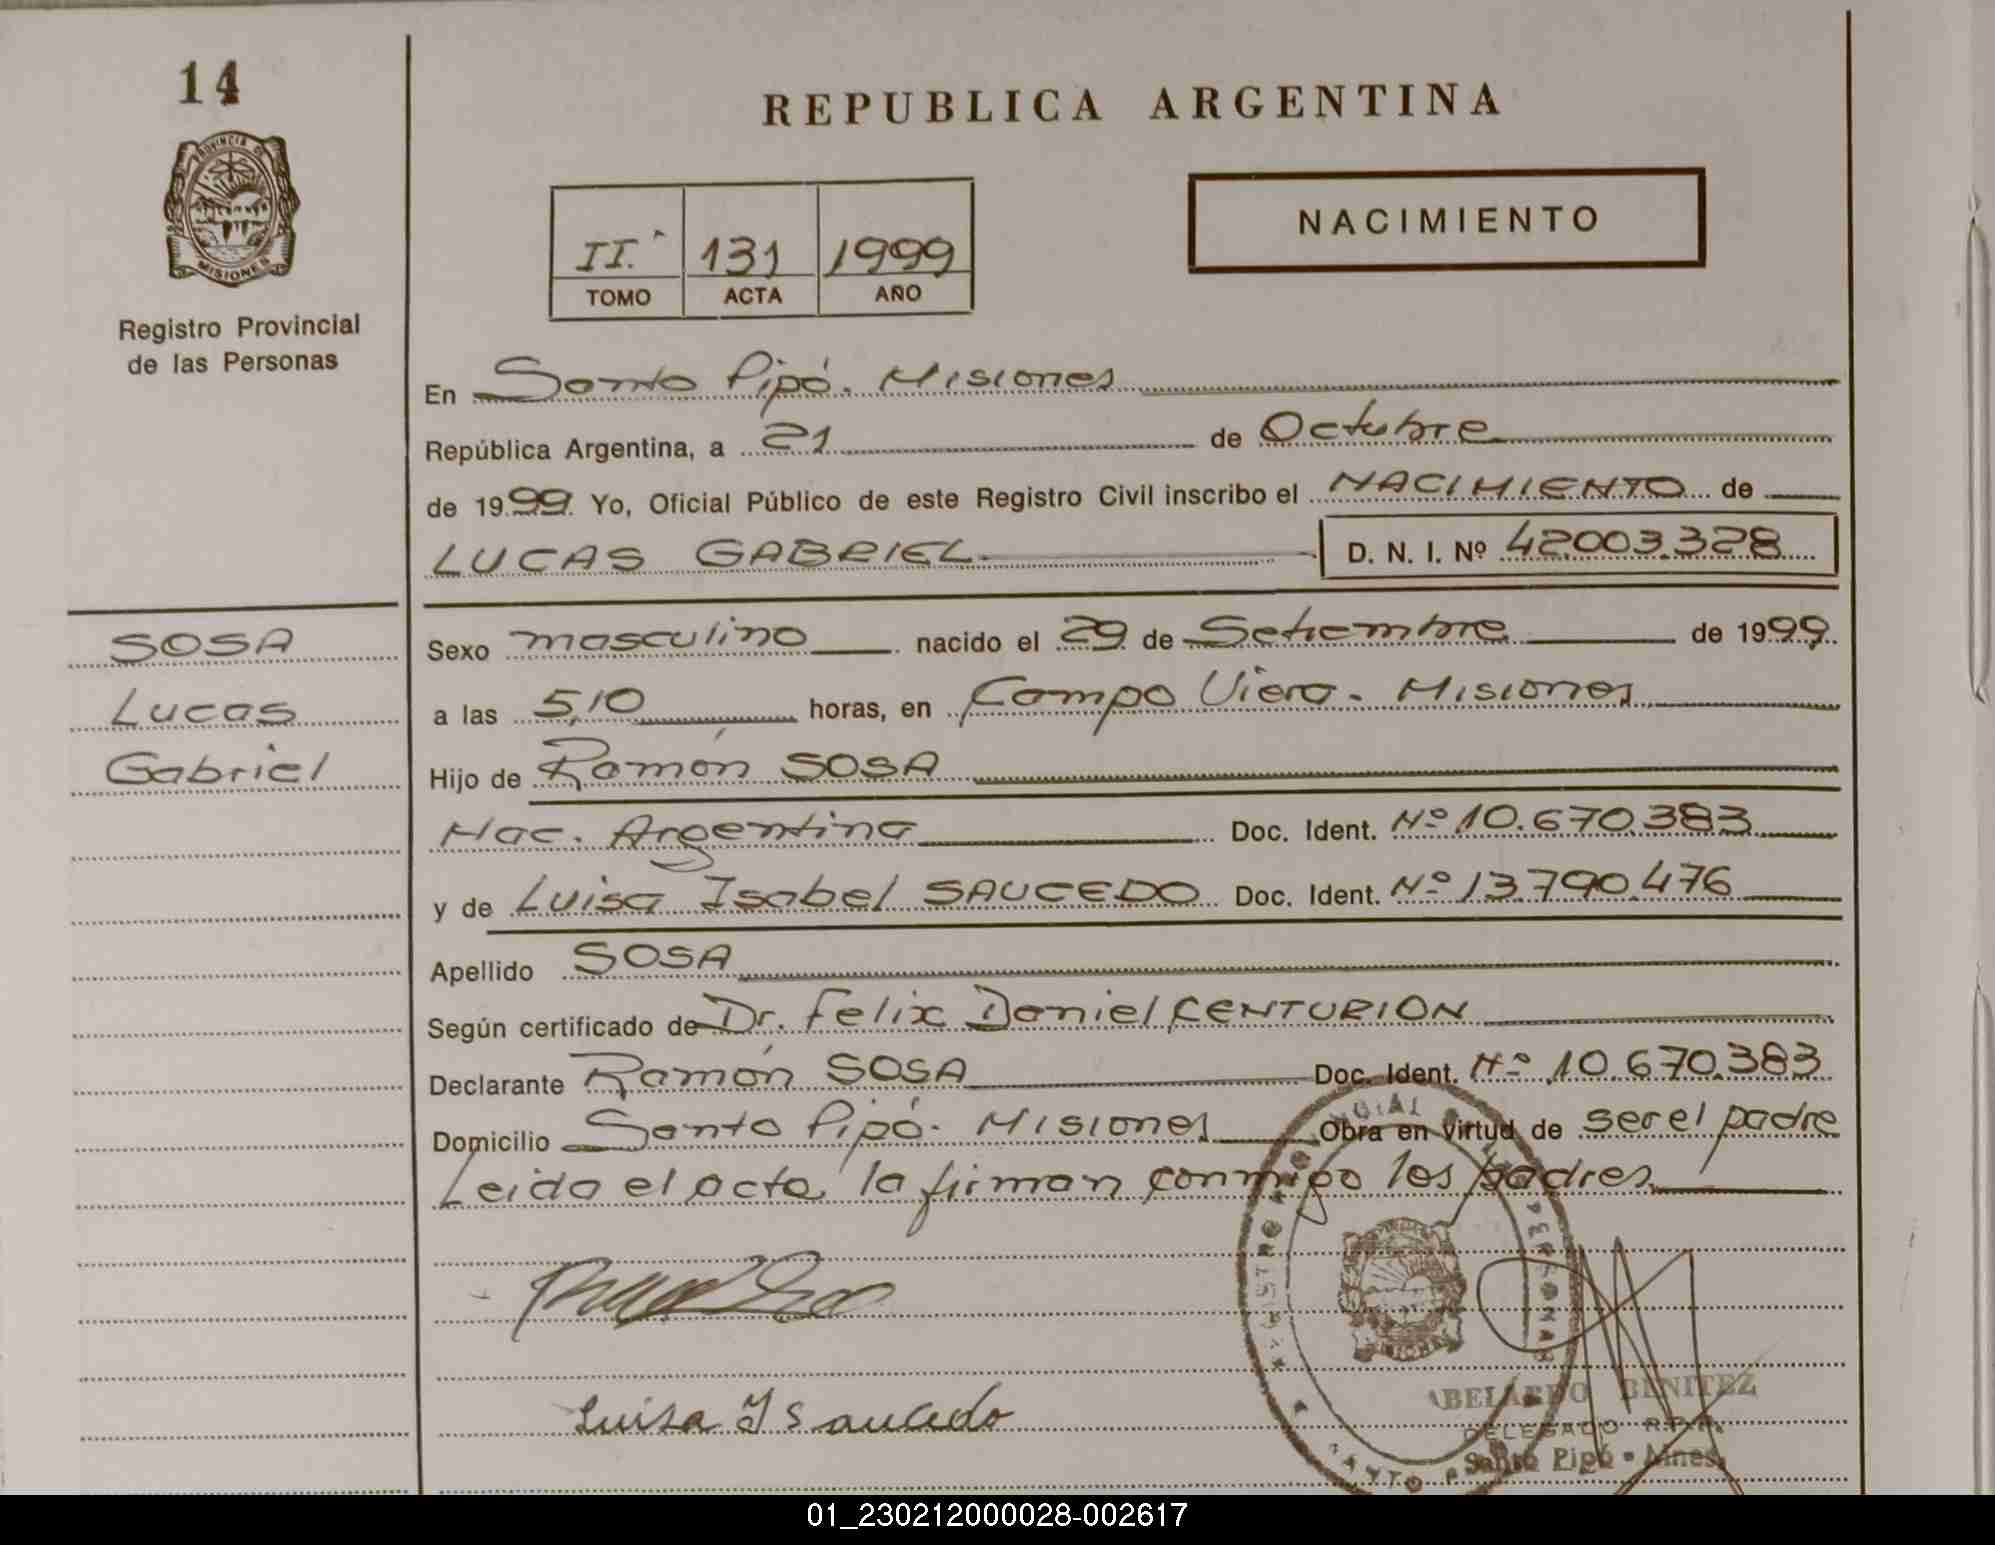 14
REPUBLICA ARGENTINA
PROVINCIA DE
MISIONES
NACIMIENTO
II. 131 1999
TOMO ACTA AÑO
Registro Provincial
de las Personas
En Santo Pipó. Misiones
República Argentina, a 21 de Octubre
de 1999 Yo, Oficial Público de este Registro Civil inscribo el NACIMIENTO de
LUCAS GABRIEL D. N. I. Nº 42.003.328
SOSA
Lucas
Gabriel
Sexo masculino nacido el 29 de Setiembre de 1999.
a las 5,10 horas, en Campo Viera. Misiones
Hijo de Ramón SOSA
Nac. Argentina Doc. Ident. Nº 10.670.383
y de Luisa Isabel SAUCEDO Doc. Ident. Nº 13.790.476
Apellido SOSA
Según certificado de Dr. Felix Daniel CENTURION
Declarante Ramón SOSA Doc. Ident. Nº 10.670.383
Domicilio Santo Pipó. Misiones Obra en virtud de ser el padre
Leida el acta, la firman conmigo los padres
Luisa I Saucedo
ABELARDO BENITEZ
DELEGADO R.P.P.
Santo Pipó - Mnes.
01_230212000028-002617